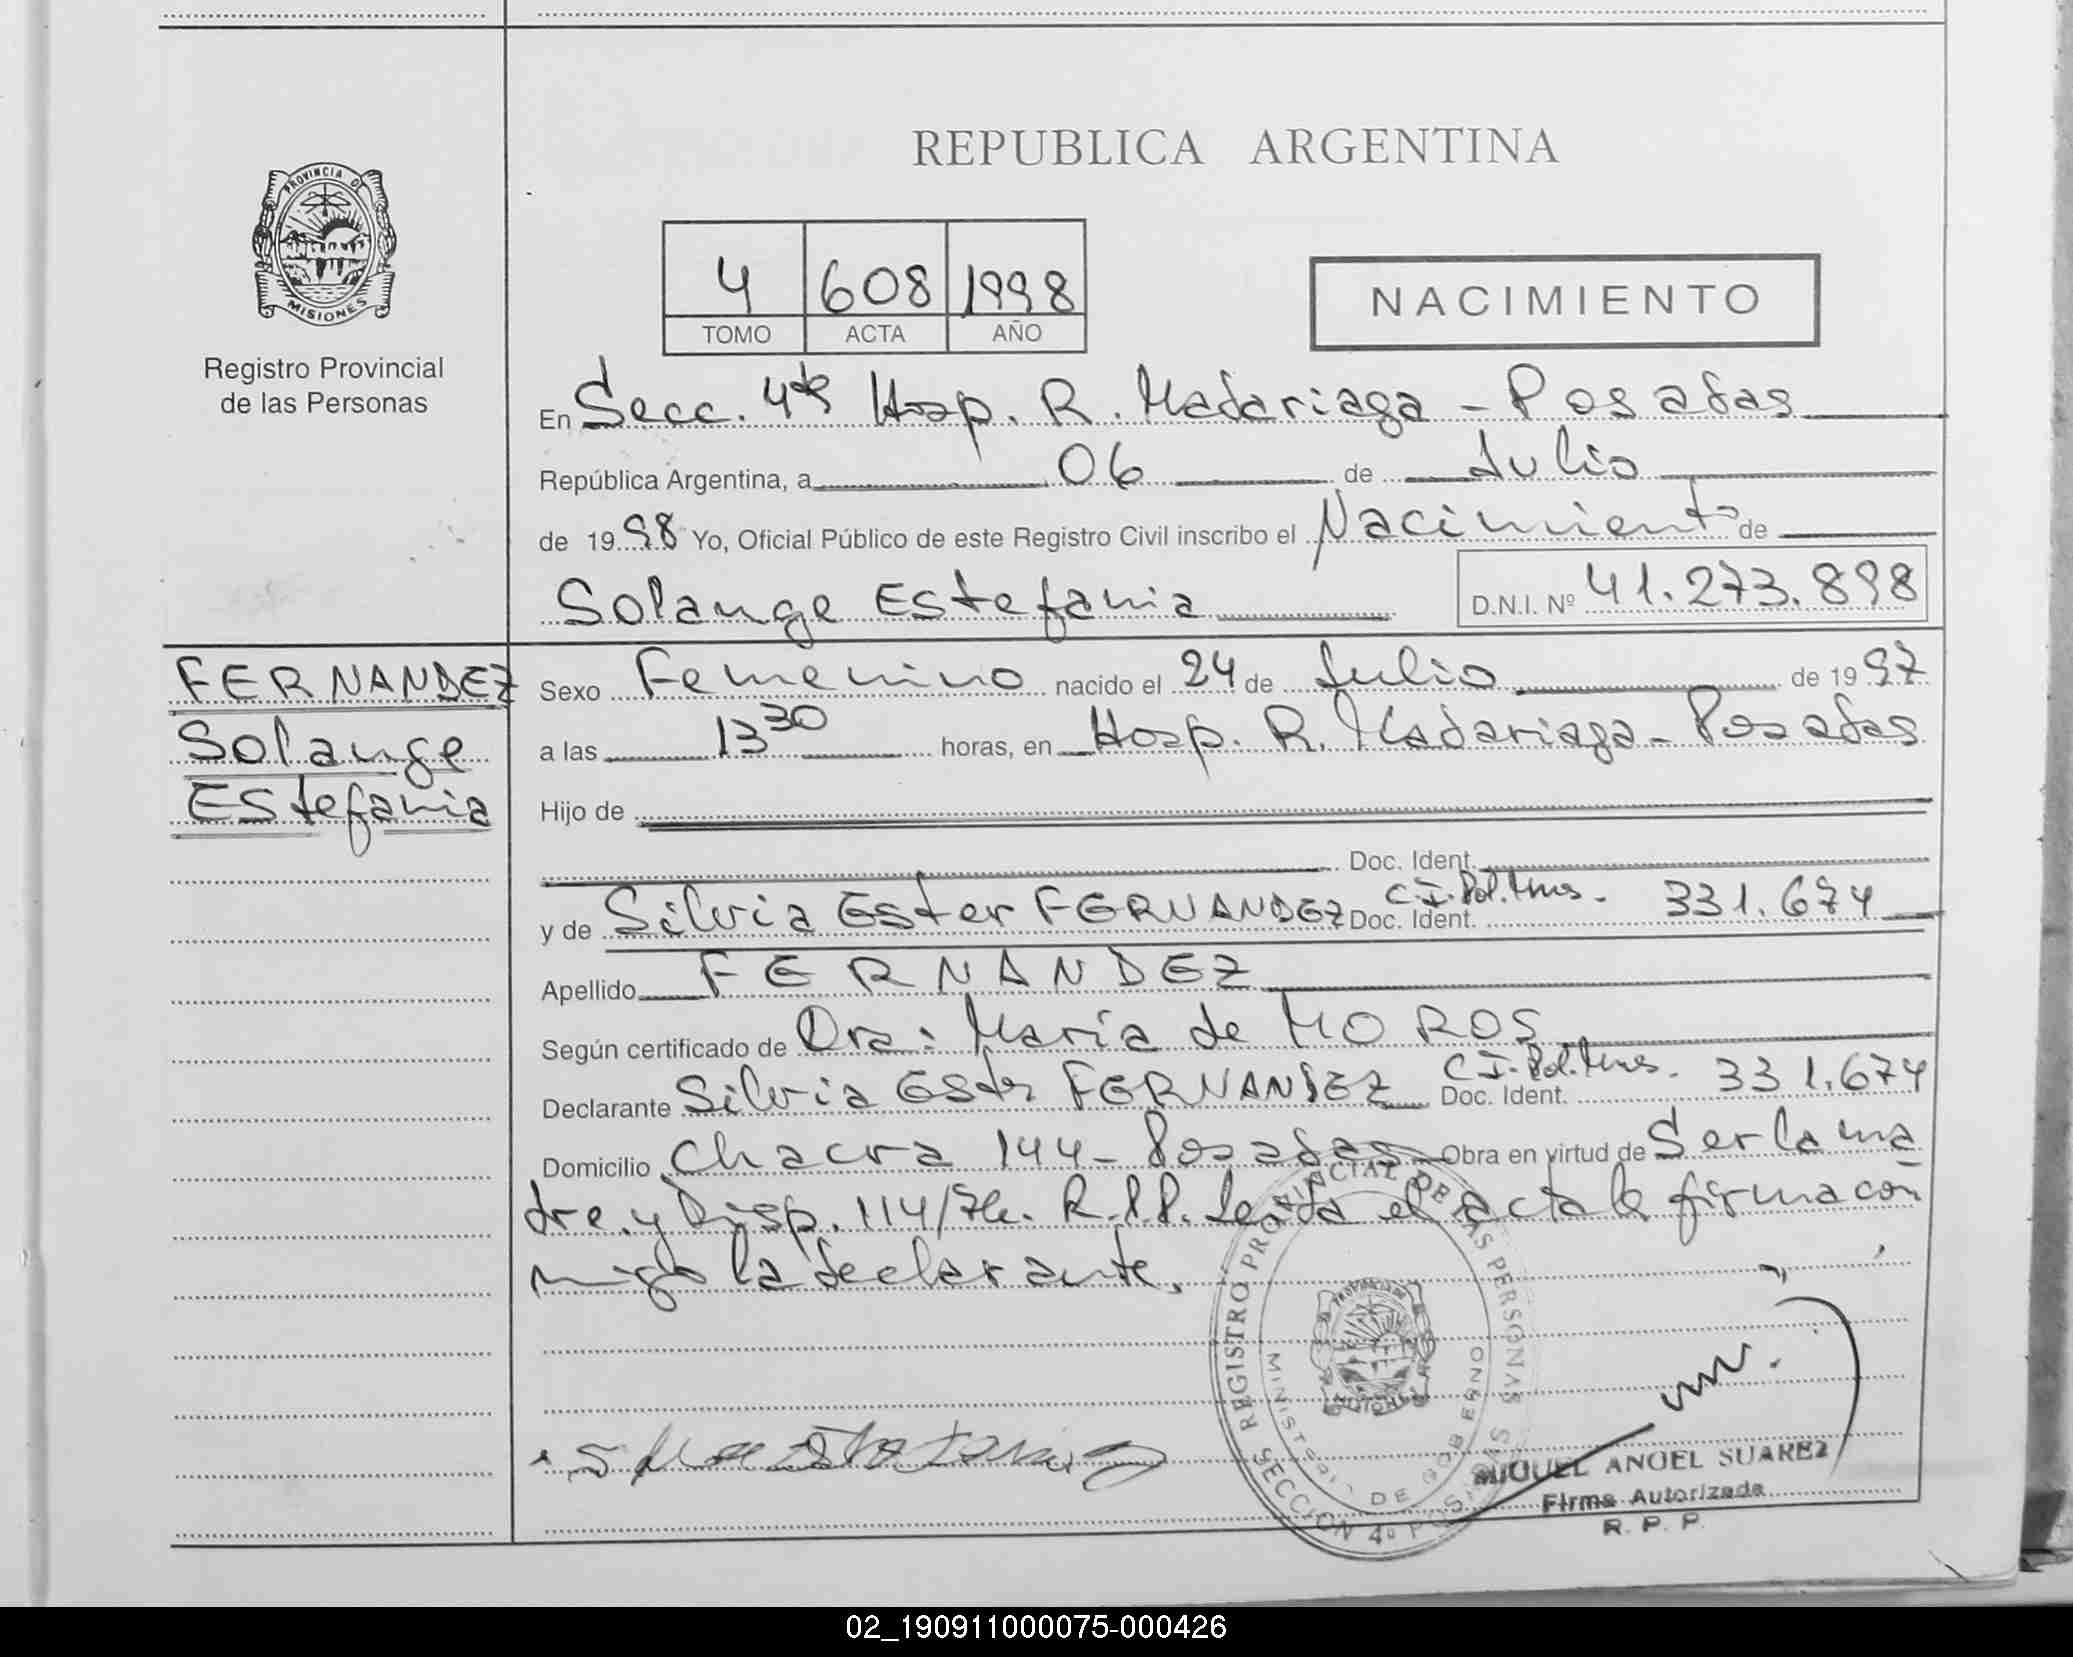 PROVINCIA DE
MISIONES
Registro Provincial
de las Personas
REPUBLICA ARGENTINA
4 608 1998
TOMO ACTA AÑO
NACIMIENTO
En Secc. 4ta Hosp. R. Madariaga - Posadas
República Argentina, a 06 de Julio
de 1998 Yo, Oficial Público de este Registro Civil inscribo el Nacimiento de
Solange Estefania D.N.I. Nº 41.273.898
FERNANDEZ
Solange
Estefania
Sexo Femenino nacido el 24 de Julio de 1997
a las 13 30 horas, en Hosp. R. Madariaga - Posadas
Hijo de
Doc. Ident.
y de Silvia Ester FERNANDEZ Doc. Ident. C.I. Pol. Mnes. 331.674
Apellido FERNANDEZ
Según certificado de Dra: María de MOROS
Declarante Silvia Ester FERNANDEZ Doc. Ident. C.I. Pol. Mnes. 331.674
Domicilio Chacra 144 - Posadas Obra en virtud de Ser la ma
dre. y Disp. 114/ R.P.P. Leída el acta la firma con
migo la declarante.
REGISTRO PROVINCIAL DE LAS PERSONAS
MINISTERIO DE GOBIERNO
SECCION 4º POSADAS
MIGUEL ANGEL SUAREZ
Firma Autorizada
R. P. P.
02_190911000075-000426